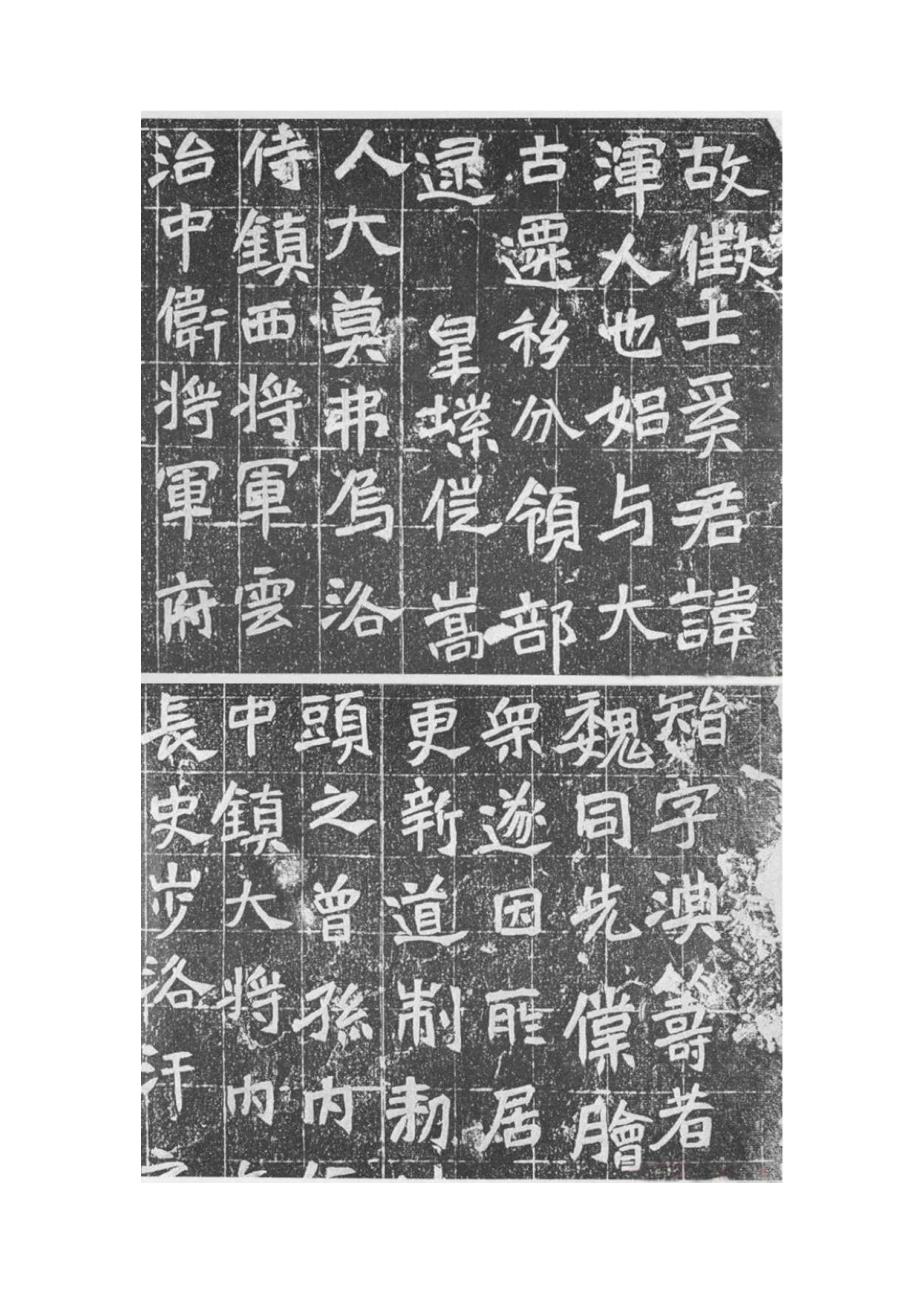 故徵士奚君諱
渾人也始与大
古遷移分領部
逮皇業徙嵩
人大莫弗烏洛
侍鎮西將軍雲
治中衛將軍府
智字淟籌者
魏同先僕膾
衆遂因所居
更新道制勅
頭之曾孫内
中鎮大將内
長史步洛汗